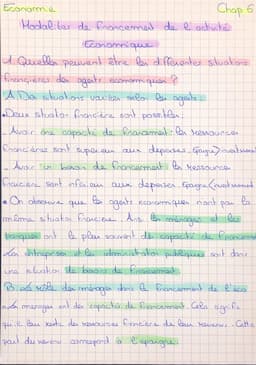 Economie Chap 6
Modalités de financement de l'activité
Economique
1. Quelles peuvent être les différentes situations
financières des agents economiques ?
A. Des situations variées selon les agents
• Deux situatio° financière sont possibles :
- Avoir une capacité de financement : les ressources
financières sont supérieur aux dépenses. Epargne > investissement
- Avoir un besoin de financement : les ressources
financière sont inférieur aux dépenses Epargne < investissement
• On observe que les agents economiques n'ont pas la
même situatio° financière. Ains les ménages et les
banques ont le plus souvent de capacité de financement
Les entreprises et les administration publiques sont dans
une situation de besoin de financement.
B. Le rôle des ménages dans le financement de l'éco
• Les menages ont des capacités de financement. Cela signifie
qu'il leur reste des ressources financière de leur revenu. Cette
part du revenu correspond à l'épargne.